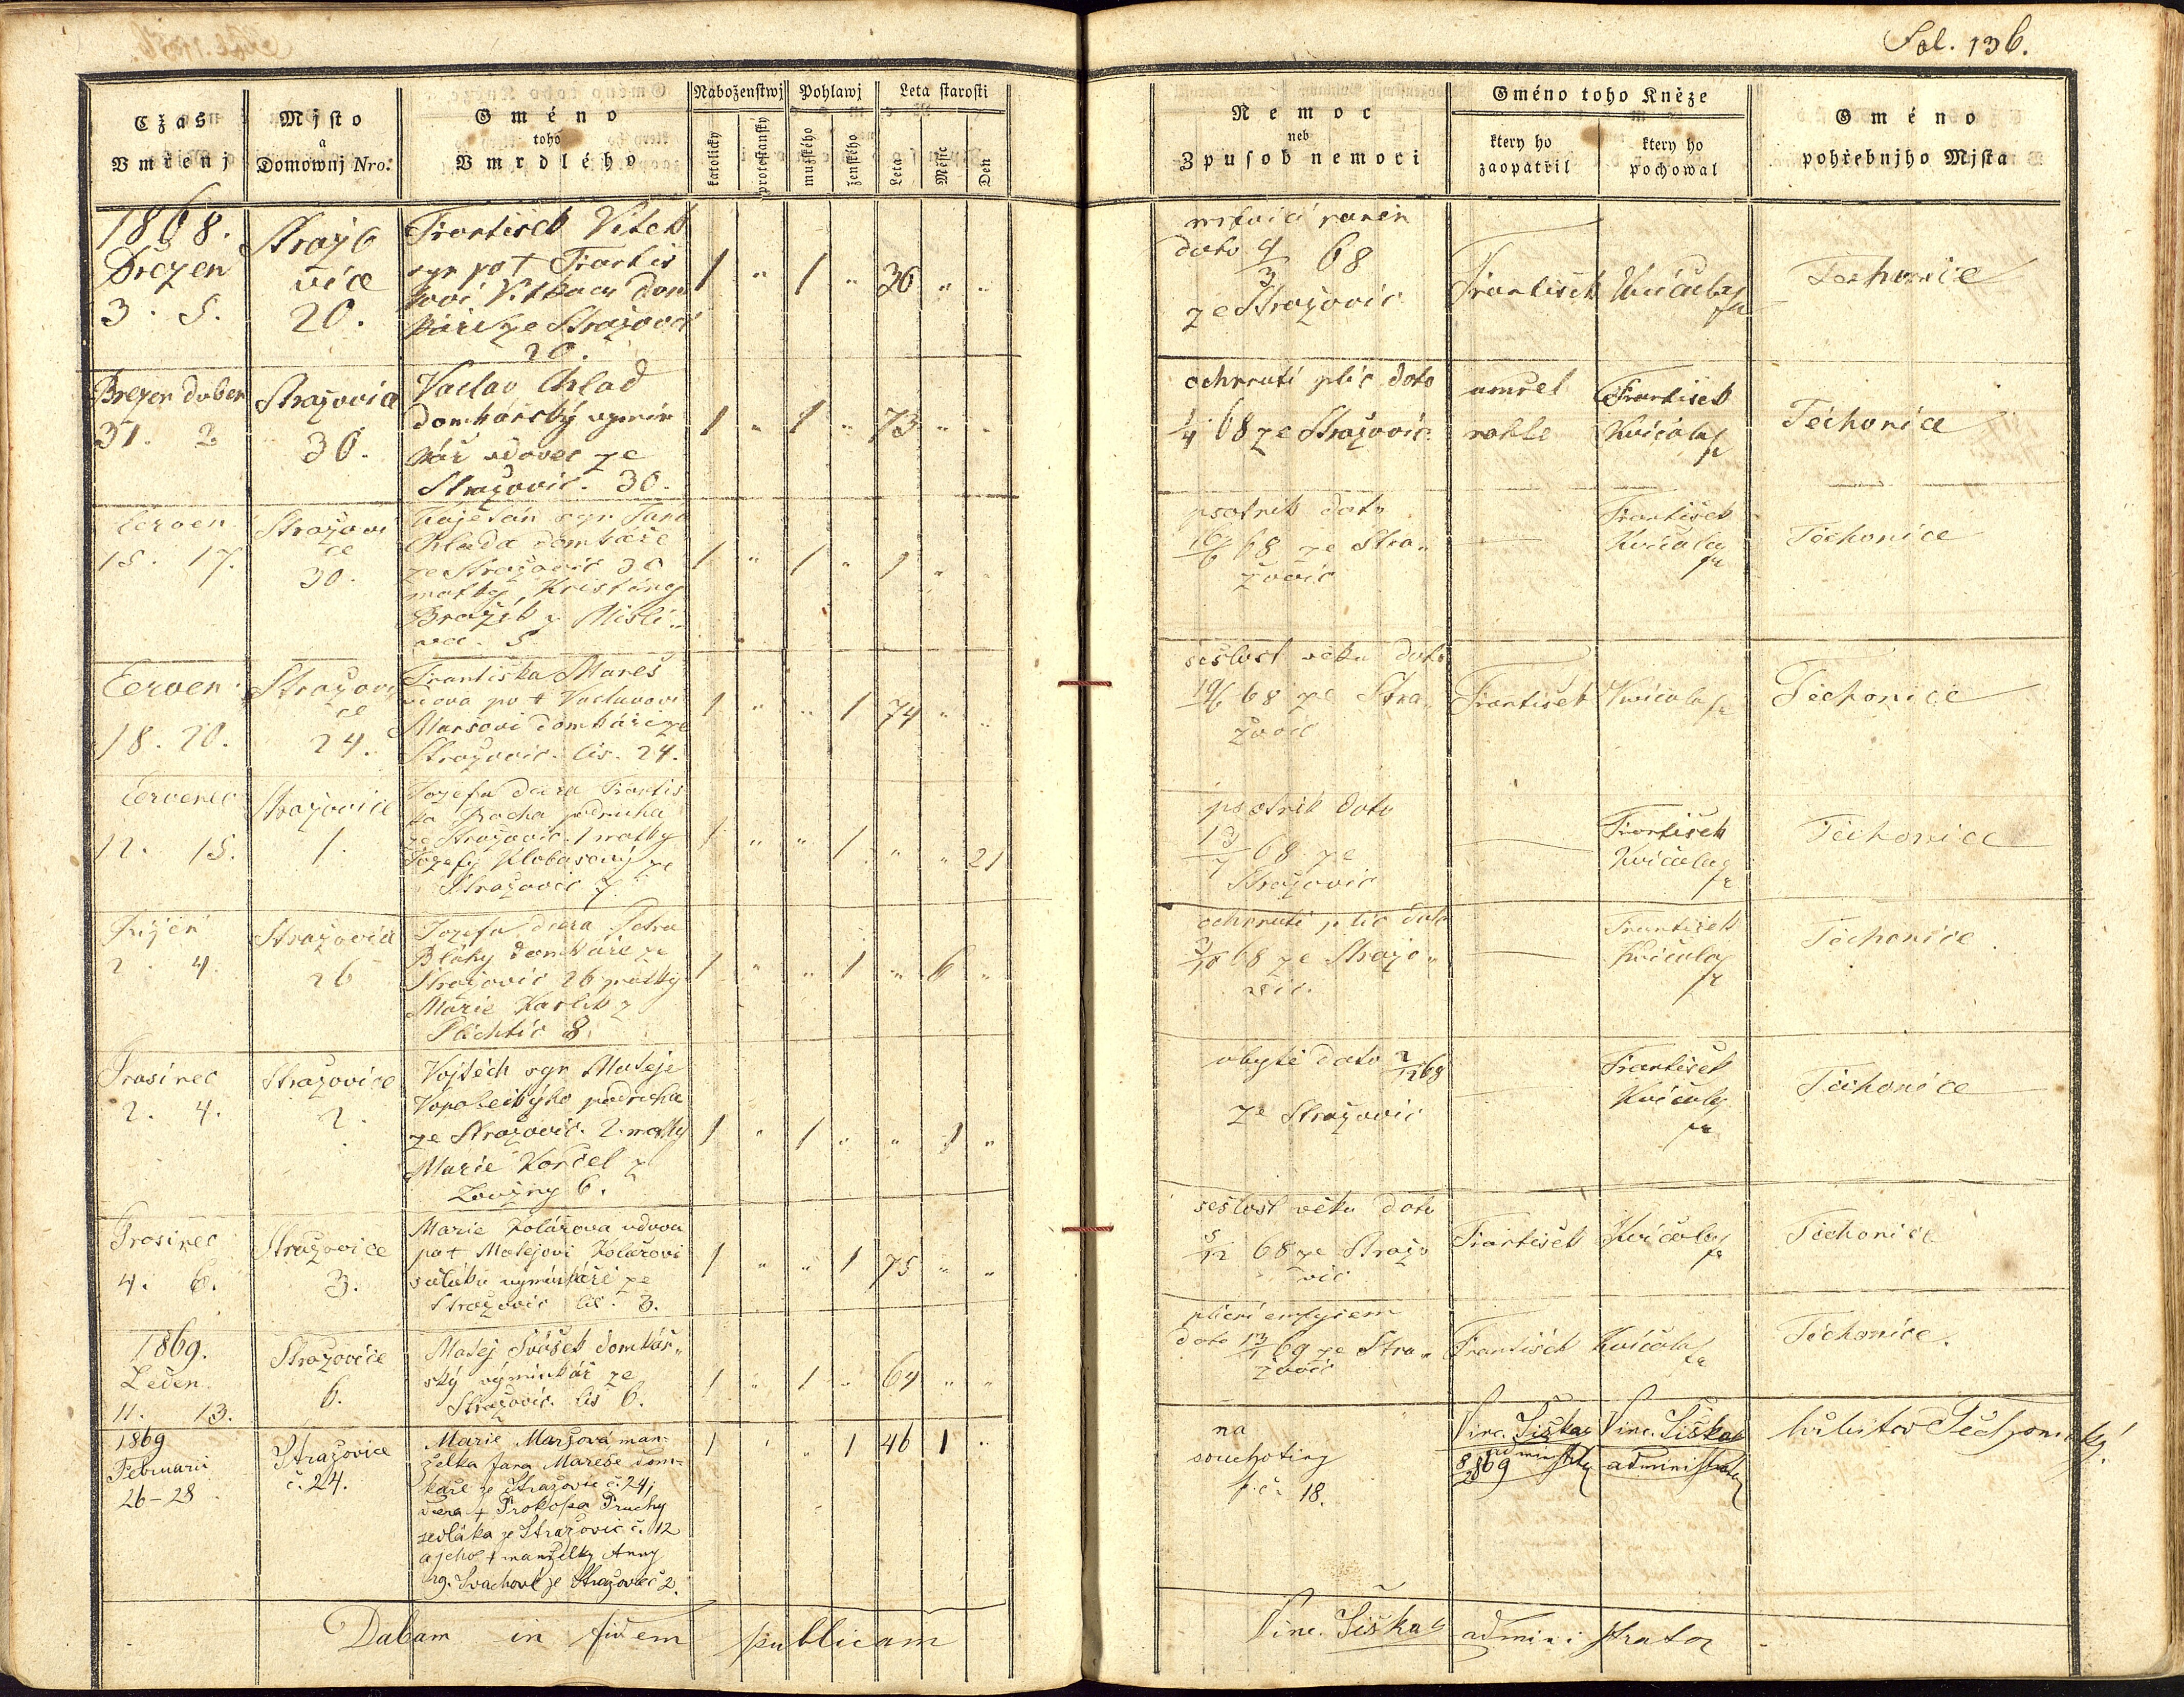 Fol. 136.
Cžas
Vmřenj
Mjsto
a
Domownj Nro:
Gméno
toho
Vmrdlého
Náboženstwj
katolický
protestanský
Pohlawj
mužského
ženského
Leta starosti
Leta
Měsíc
Den
Nemoc
neb
Zpusob nemoci
Gméno toho Kněze
ktery ho
zaopatřil
ktery ho
pochowal
Gméno
pohřebnjho Mjsta
1868.
Březen
3. 5.
Stražo
vice
20.
František Vítek
syn po † Františ
kovi Vítkovi dom
káři ze Stražovic
20.
1 " 1 " 36 " "
dato 4/3 68
ze Stražovic
František Kvíčala
Těchonice
Březen duben
31. 2
Stražovice
30.
Vaclav Chlad
domkářský vymin
kář vdovec ze
Stražovic. 30.
1 " 1 " 73 " "
ochrnutí plic dato
1/4 68 ze Stražovic
umřel
náhle
František
Kvíčala
Těchonice
Červen
15. 17.
Stražovi
ce
30.
Kajetán syn Jana
Chlada domkáře
ze Stražovic 30
matky Kristíny
Bražík z Misli
vic. 5
1 " 1 " 1 " "
psotník dato
16/6 68 ze Stra
žovic
František
Kvíčala
Těchonice
Červen
18. 20.
Stražovi
ce
24.
Františka Mareš
vdova po † Vaclavovi
Marsovi domkáři ze
Stražovic. čis. 24.
1 " " 1 74 " "
sešlost věku dato
19/6 68 ze Stra
žovic
František Kvíčala
Těchonice
Červenec
12. 15.
Stražovice
1.
Jozefa dcera Františ
ka Pacha podruha
ze Stražovic. 1 matky
Jozefy Klobasový ze
Stražovic 7.
1 " " 1 " " 21
psotník dato
13/7 68 ze
Stražovic
František
Kvíčala
Těchonice
Říjen
2. 4.
Stražovice
26
Jozefa dcera Petra
Bláhy domkáře ze
Stražovic 26 matky
Marie Karlík z
Plichtic 8.
1 " " 1 " 6 "
ochrnutí plic dato
3/10 68 ze Stražo
vic.
František
Kvíčala
Těchonice
Prosinec
2. 4.
Stražovice
2.
Vojtěch syn Matěje
podruha
ze Stražovic. 2. matky
Marie Korčel z
6.
1 " 1 " " 1 "
ubytě dato 2/12 68
ze Stražovic
František
Kvíčala
Těchonice
Prosinec
4. 6.
Stražovice
3.
Marie Kolářova vdova
po † Matějovi Kolářovi
sedláku vyminkáři ze
Stražovic čis. 3.
1 " " 1 75 " "
sešlost věku dato
5/12 68 ze Stražo
vic
František Kvíčala
Těchonice
1869.
Leden
11. 13.
Stražovice
6.
Matěj Svášek domkář
ský výminkář ze
Stražovic. čis 6.
1 " 1 " 64 " "
plicní emfysem
dato 12/1 69 ze Stra
žovic
František Kvíčala
Těchonice.
1869
Februarii
26–28
Stražovice
č. 24.
Marie Maršová man-
želka Jana Mareše dom-
káře ze Stražovic č. 24;
dcera † Prokopa Pruchy
sedláka ze Stražovic č. 12
a jeho † manželky Anny
rg. Svachové ze Stražovic č 2.
1 " " 1 46 1 "
na
souchotiny
p. č. 18.
Vinc. Šiška
administr
8/2 869
Vinc. Šiška
administrator
hřbitov Těchonický.
Dabam in fidem publicam
Vinc. Šiška administrator